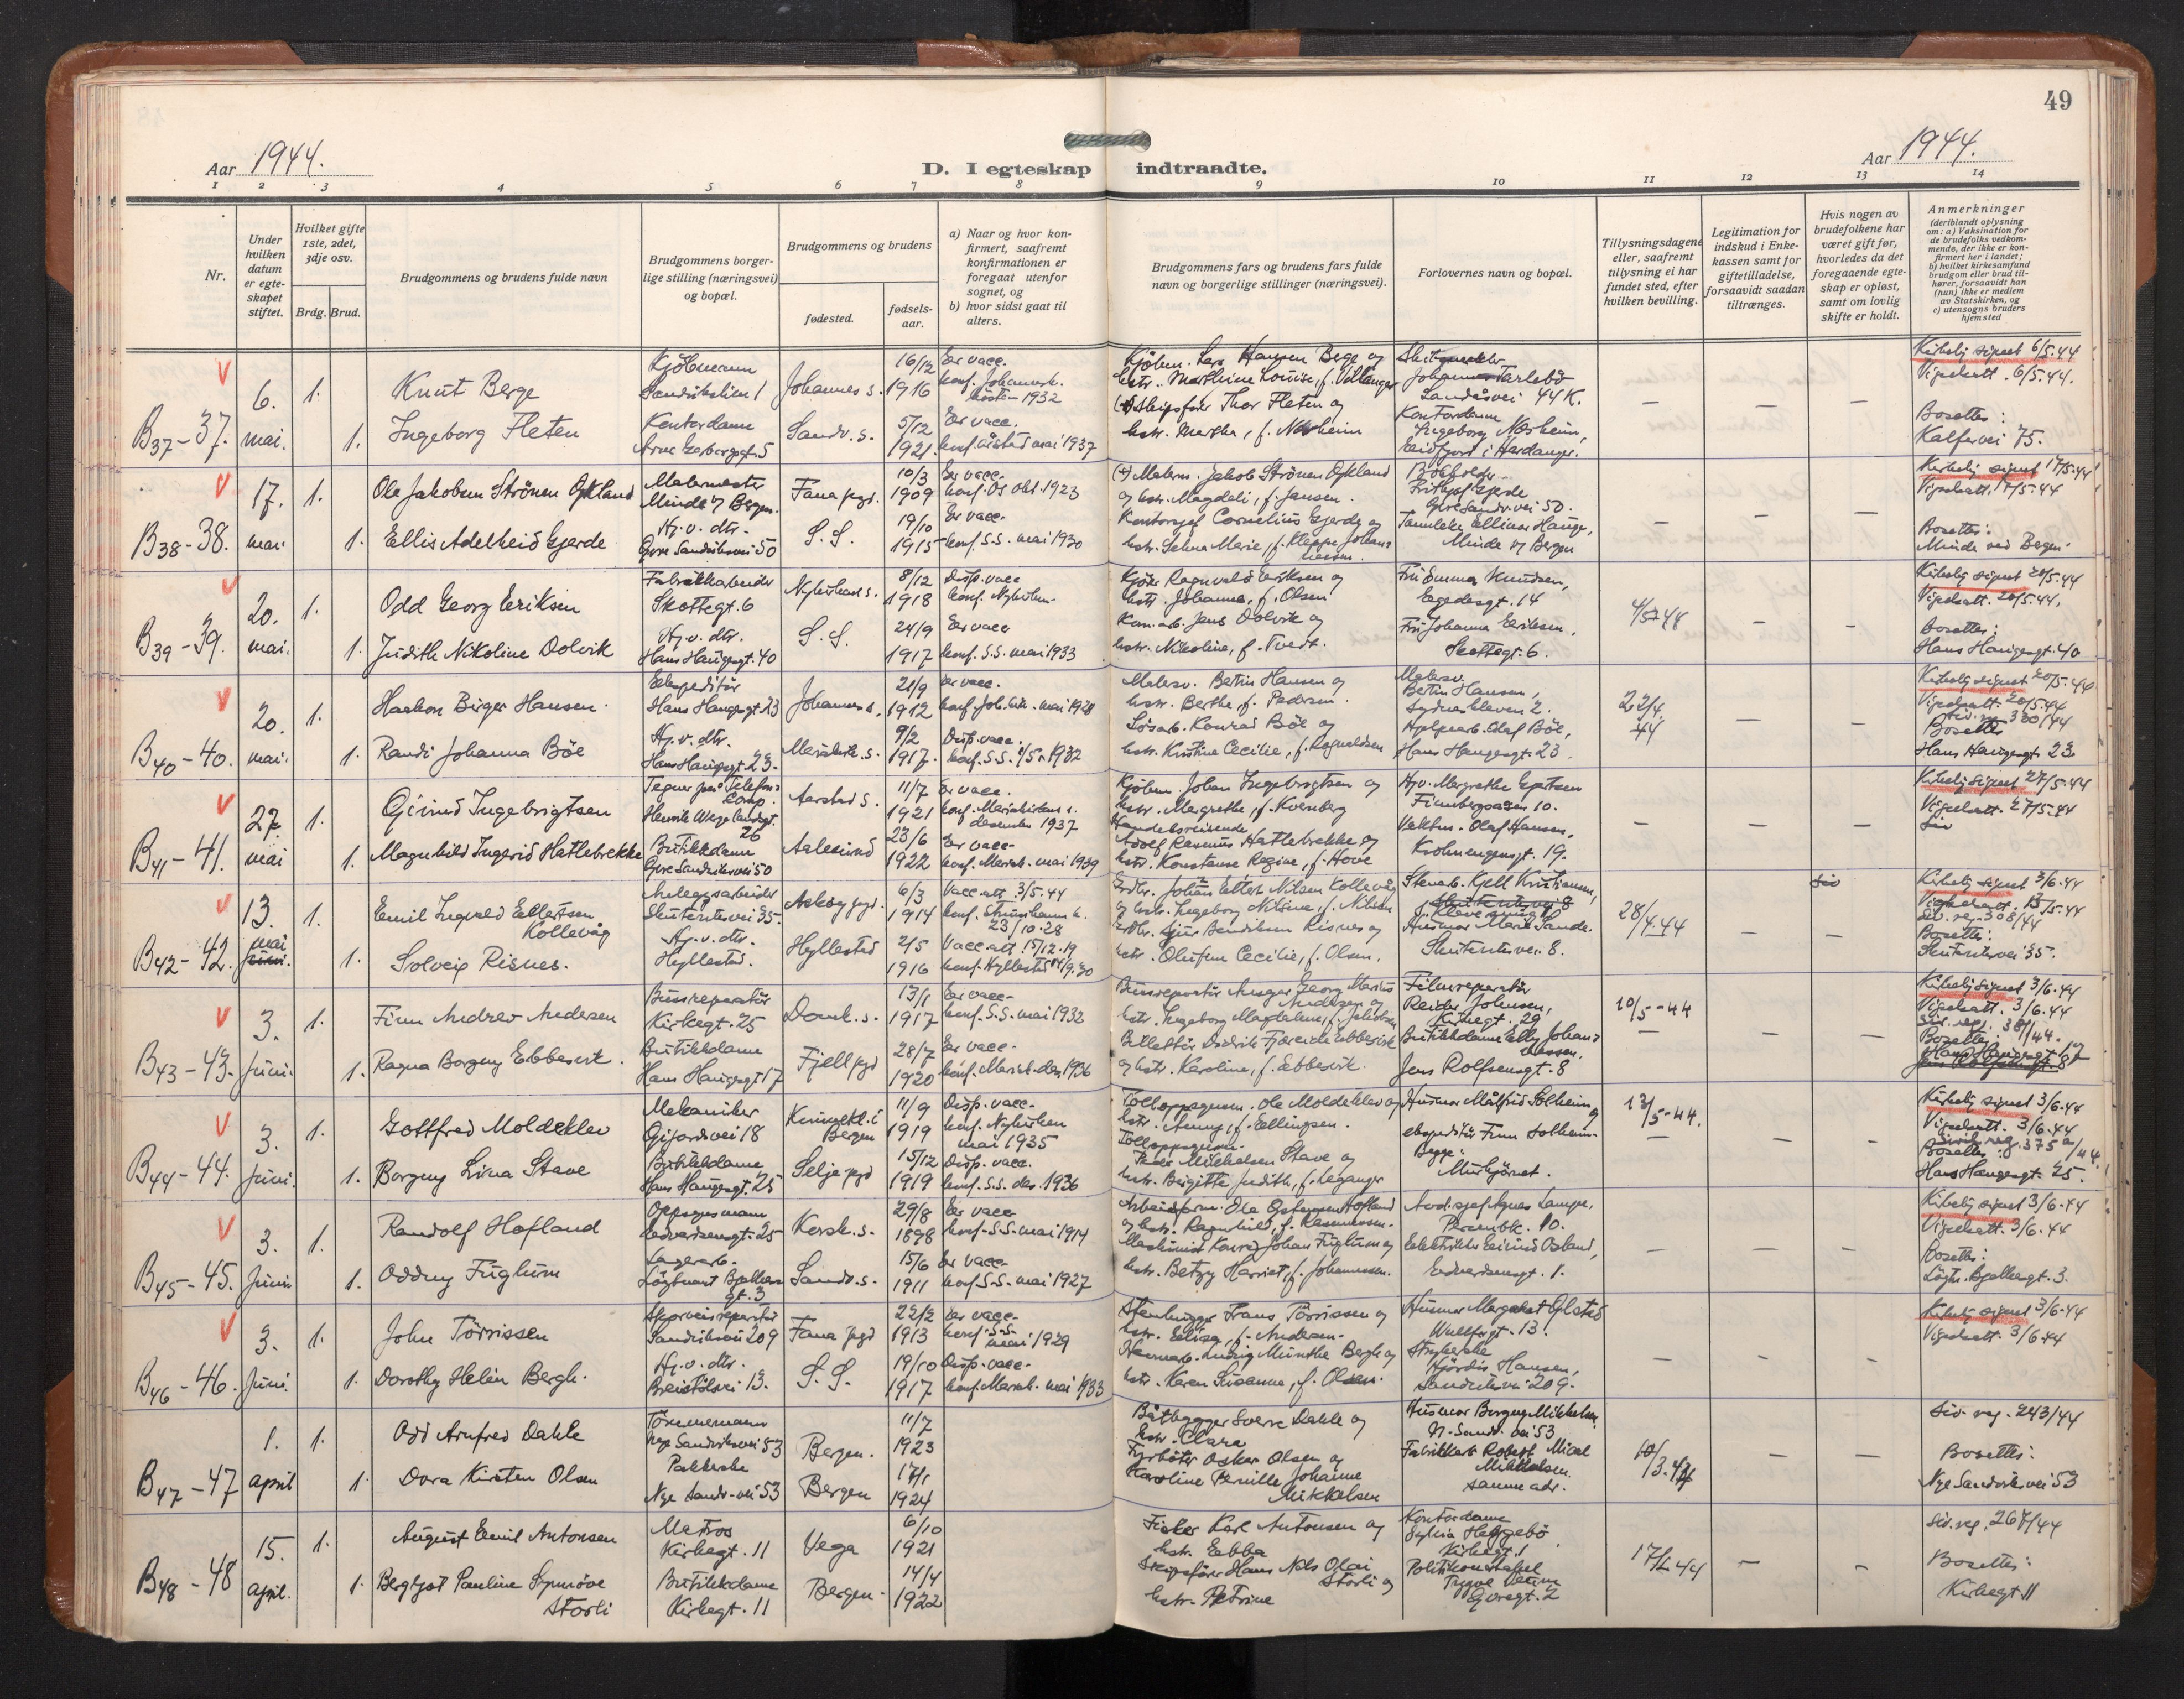 49
Aar 1944.
D. I egteskap indtraadte.
Aar 1944.
1 2 3 4 5 6 7 8 9 10 11 12 13 14
Nr.
Under hvilken datum er egteskapet stiftet.
Hvilket gifte 1ste, 2det, 3dje osv.
Brdg. Brud.
Brudgommens og brudens fulde navn
Brudgommens borgerlige stilling (næringsvei) og bopæl.
Brudgommens og brudens
fødested.
fødselsaar.
a) Naar og hvor konfirmert, saafremt konfirmationen er foregaat utenfor sognet, og
b) hvor sidst gaat til alters.
Brudgommens fars og brudens fars fulde navn og borgerlige stillinger (næringsvei).
Forlovernes navn og bopæl.
Tillysningsdagene eller, saafremt tillysning ei har fundet sted, efter hvilken bevilling.
Legitimation for indskud i Enkekassen samt for giftetilladelse, forsaavidt saadan tiltrænges.
Hvis nogen av brudefolkene har været gift før, hvorledes da det foregaaende egteskap er opløst, samt om lovlig skifte er holdt.
Anmerkninger
(deriblandt oplysning om: a) Vaksination for de brudefolks vedkommende, der ikke er konfirmert her i landet;
b) hvilket kirkesamfund brudgom eller brud tilhører, forsaavidt han (hun) ikke er medlem av Statskirken, og
c) utensogns bruders hjemsted
B37-37. 6. mai. 1. 1.
Knut Berge
Ingeborg Fleten
Kjøbmann
Sandviksliem 1
Kontordame
Arne Garborgsgt. 5
Johannes s.
Sandv. s.
16/12 1916
5/12 1921.
Er vacc.
konf. Johannesk.
høsten 1932
Er vacc.
mai 1937
Hansen Berge og
hstr. Marthine Louise, f. Villanger
Skipsfører Thor Fleten og
hstr. Martha, f. Nesheim
Landåsvei 44 K.
Kontordame
Ingeborg Nesheim,
Eidfjord i Hardanger.
Kirkelig signet 6/5.44
Vigselsatt. 6/5.44.
Bosettes:
Kalfarvei 75.
B38-38. 17. mai 1. 1.
Ole Jakobsen Strönen Økland
Ellis Adelheid Gjerde
Malermester
Minde v/ Bergen.
Hj. v. dtr.
Øvre Sandviksvei 50
Fana pgd.
S. S.
10/3 1909
19/10 1915
Er vacc.
konf. Os okt. 1923
Er vacc.
konf. S.S. mai 1930
(+) Malerm. Jakob Strönen Økland
og hstr. Magdali, f. Jansen.
Kontorsjef Cornelius Gjerde og
hstr. Selma Marie, f. Kleppe Johannessen.
Bokholder
Fritjof Gjerde
Øvre Sandv. vei 50.
Tannlege Ellinor Hauge,
Minde v/ Bergen
Kirkelig signet 17/5.44
Vigselsatt. 17/5.44
Bosettes:
Minde ved Bergen.
B39-39. 20. mai. 1. 1.
Odd Georg Eriksen
Judith Nikoline Dolvik
Fabrikkarbeider
Skottegt. 6
Hj. v. dtr.
Hans Haugesgt. 40
Nykirkens s.
S. S.
8/12 1918
24/9 1917
Disp. vacc
konf. Nykirken
Er vacc
konf. S.S. mai 1933
Kjører Ragnvald Eriksen og
hstr. Johanne, f. Olsen
Kom. arb. Jens Dolvik og
hstr. Nikoline, f. Tvedt.
Fru Emma Knudsen,
Egedesgt. 14
Fru Johanna Eriksen,
Skottegt. 6.
Kirkelig signet 20/5.44
Vigselsatt. 20/5.44.
Bosettes:
Hans Haugesgt. 40
B40-40. 20. mai. 1. 1.
Haakon Birger Hansen.
Randi Johanna Böe
Ekspeditør
Hans Haugesgt. 23
Hj. v. dtr.
Hans Haugesgt. 23.
Johannes s.
Mariakirk. s.
21/9 1912
9/2 1917.
Er vacc.
konf. Joh. kirk. mai 1928
Disp. vacc.
konf. S.S. 1/5.1932
Malersv. Bertin Hansen og
hstr. Berthe, f. Pedersen.
Løsarb. Konrad Böe og
hstr. Kristine Cecilie, f. Ragnvaldsen
Malersv.
Bertin Hansen,
Sydneskleven 2.
Hjelpearb. Olaf Böe,
Hans Haugesgt. 23.
22/4 44
Kirkelig signet 20/5.44
Vigselsatt. 20/5.44
Siv. reg. 320/44
Bosettes
Hans Haugesgt. 23
B41-41. 27. mai 1. 1.
Øivind Ingebrigtsen
Magnhild Ingerid Hatlebrekke
Tegner ved Telefon-Comp.
Henrik Wergelandsgt. 26
Butikkdame
Øvre Sandviksvei 50
Aarstad s.
Aalesund
11/7 1921
23/6 1922
Er vacc.
konf. Mariakirkens s.
desember 1937
Er vacc.
konf. Mariak. mai 1939
Kjøbm. Johan Ingebrigtsen og
hstr. Margrethe, f. Kvernberg
Handelsreisende
Adolf Rasmus Hatlebrekke og
hstr. Konstanse Regine, f. Hove
Hj. v. Margrethe Egertsen
Finnbergåsen 10.
Vaktm. Olaf Hansen,
Krohnengsgt. 19.
Kirkelig signet 27/5.44
Vigselsatt. 27/5.44
B42-42. 13. mai juni. 1. 1.
Emil Ingvald Ellertsen
Kollevåg
Solveig Risnes.
Anleggsarbeider
Skuteviksvei 35.
Hj. v. dtr.
Hyllestad.
Askøy pgd.
Hyllestad
6/3 1914
2/5 1916
Vacc. att. 3/5.44
konf. Strusshamn k.
23/10.28
Vacc. att. 15/12.19
konf. Hyllestad 14/9.30
Grdbr. Johan Ellert Nilsen Kollevåg
og hstr. Ingeborg Nilsine, f. Nilsen
hstr. Olufine Cecilie, f. Olsen.
Stenarb. Kjell Kristiansen,
Husmor Marie Sande.
Skuteviksvei. 8.
28/4.44
Kirkelig signet 3/6.44
Vigselsatt. 13/5.44
Siv. reg. 308/44
Bosettes:
Skuteviksvei 35.
B43-43. 3. juni. 1. 1.
Finn Andrev Andersen
Ragna Borgny Ebbesvik.
Bussreparatør
Kirkegt. 25
Butikkdame
Hans Haugesgt 17
Domk. s.
Fjell pgd
13/1 1917
28/7 1920
Er vacc.
konf. S.S. mai 1932
Er vacc.
konf. Mariak. des. 1936
Bussreparatør Ansgar Georg Marius
Andersen og
hstr. Ingeborg Magdalene, f. Jakobsen
Billettør Didrik Fjæreide Ebbesvik
og hstr. Karoline, f. Ebbesvik.
Filmreparatør
Reidar Johnsen,
Kirkegt. 29
Butikkdame Elly Johannessen,
Jens Rolfsensgt. 8
10/5-44
Kirkelig signet 3/6.44
Vigselsatt. 3/6.44
Siv. reg. 381/44.
Bosettes
Hans Haugesgt. 17
B44-44. 3. juni. 1. 1.
Gottfred Moldeklev
Borgny Lina Stave
Mekaniker
Gjøardsvei 18
Butikkdame
Hans Haugesgt. 25
Bergen
Selje pgd
11/9 1919
15/12 1919
Disp. vacc.
konf. Nykirken
mai 1935
Disp. vacc.
konf. S.S. des. 1936
Tolloppsynsm. Ole Moldeklev og
hstr. Anny, f. Ellingsen.
Tolloppsynsm.
Peder Mikkelsen Stave og
hstr. Birgitte Judith, f. Leganger
Husmor Målfrid Solheim og
ekspeditør Finn Solheim.
Begge:
Murhjørnet.
13/5-44.
Kirkelig signet 3/6.44
Vigselsatt. 3/6.44
Bosettes
Hans Haugesgt. 25.
B45-45. 3. juni 1. 1.
Randolf Hofland
Oddny Fuglum
Oppsynsmann
Edvardsensgt. 25
Lagerarb.
gt. 3
Korsk. s.
Sandv. s.
29/8 1898
15/6 1911
Er vacc
konf. S.S. mai 1914
Er vacc.
konf. S.S. mai 1927
og hstr. Ragnhild, f. Rasmussen.
Maskinist Konrad Johan Fuglum og
hstr. Betzy Harriet, f. Johannessen.
Avd. sjef Agnes Lampe,
Elektriker Eivind Osland,
Edvardsensgt. 1.
Kirkelig signet 3/6.44
Vigselsatt. 3/6.44
Bosettes:
B46-46. 3. juni. 1. 1.
John Törrissen
Dorothy Helén Bergh.
Sporveisreparatør
Sandviksvei 209
Hj. v. dtr.
Breistølsvei 13.
Fana pgd
S. S.
22/2 1913
19/10 1917
Er vacc.
konf. S.S.
mai 1929
Disp. vacc.
konf. Mariak. mai 1933
Stenhugger Frans Törrissen og
hstr. Elise, f. Andersen.
Havnearb. Ludvig Munthe Bergh og
hstr. Karen Susanne, f. Olsen.
Husmor Margaret Ølstad
Wulffsgt. 13.
Strykerske
Hjördis Hansen,
Sandviksvei 209.
Kirkelig signet 3/6.44
Vigselsatt. 3/6.44
B47-47 1. april 1. 1.
Odd Arnfred Dahle
Dora Kirsten Olsen
Tömmermann
Nye Sandviksvei 53
Pakkerske
Nye Sandv. vei 53
Bergen.
Bergen
11/7 1923
17/1 1924
Båtbygger Sverre Dahle og
hstr. Clara
Fyrbøter Oskar Olsen og
Karoline Pernille Johanne
Mikkelsen
Husmor Borgny Mikkelsen
N. Sandv. vei 53
Fabrikkarb. Robert Mikal
Mikkelsen.
samme adr.
10/3.44
Siv. reg. 243/44
Bosettes:
Nye Sandviksvei 53
B48-48 15. april. 1. 1.
August Emil Antonsen
Bergljot Pauline Synnöve
Storli
Matros
Kirkegt. 11
Butikkdame
Kirkegt. 11
Vega
Bergen.
6/10 1921
14/4 1922
Fisker Karl Antonsen og
hstr. Ebba
Skipsfører Hans Nils Olai
Storli og
hstr. Petrine
Kontordame
Sylvia Heggebö
Kirkegt. 1
Politikonstabel
Øvregt. 2
Siv. reg. 267/44
Bosettes:
Kirkegt 11